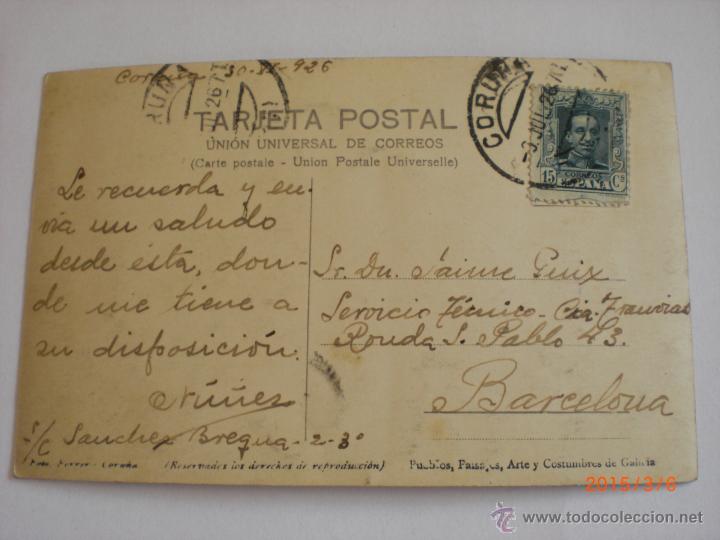 Coruña 30-VI-926
CORUÑA
26
CORUÑA
JUL 26
TARJETA POSTAL
UNIÓN UNIVERSAL DE CORREOS
(Carte postale - Union Postale Universelle)
CORREOS
15 ESPAÑA Cs
Le recuerda y en-
vía un saludo
desde ésta, don-
de me tiene a
su disposición.
Núñez
s/c Sanchez Bregua-2-3º
Sr. Dn. Jaime Guix
Servicio Técnico - Cía. Tranvías
Ronda S. Pablo 43.
Barcelona
Foto. Ferrer - Coruña (Reservados los derechos de reproducción) Pueblos, Paisajes, Arte y Costumbres de Galicia
2015/3/6
© www.todocoleccion.net